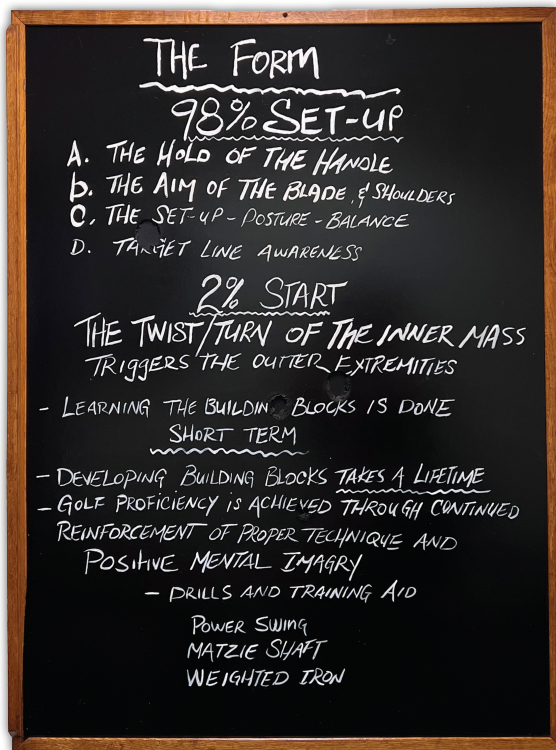 THE FORM
98% SET-UP
A. THE HOLD OF THE HANDLE
b. THE AIM OF THE BLADE, & SHOULDERS
C. THE SET-UP - POSTURE - BALANCE
D. TARGET LINE AWARENESS
2% START
THE TWIST/TURN OF THE INNER MASS
TRIGGERS THE OUTTER EXTREMITIES
- LEARNING THE BUILDING BLOCKS IS DONE
SHORT TERM
- DEVELOPING BUILDING BLOCKS TAKES A LIFETIME
- GOLF PROFICIENCY IS ACHIEVED THROUGH CONTINUED
REINFORCEMENT OF PROPER TECHNIQUE AND
POSITIVE MENTAL IMAGRY
- DRILLS AND TRAINING AID
POWER SWING
MATZIE SHAFT
WEIGHTED IRON